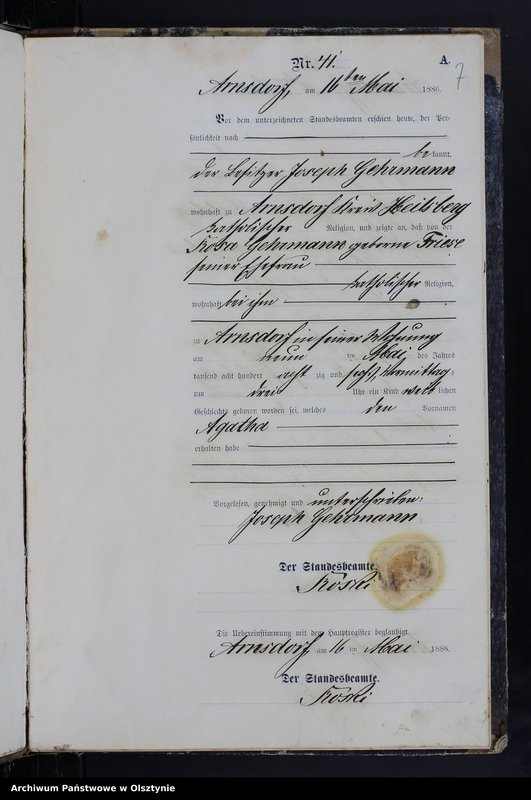 Nr. 41.
A.
7
Arnsdorf, am 16ten Mai 1886.
Vor dem unterzeichneten Standesbeamten erschien heute, der Per-
sönlichkeit nach
be kannt,
der Besitzer Joseph Gehrmann
wohnhaft zu Arnsdorf Kreis Heilsberg
katholischer Religion, und zeigte an, daß von der
Rosa Gehrmann geborne Friese
seiner Ehefrau
katholischer Religion,
wohnhaft bei ihm
zu Arnsdorf in seiner Wohnung
am neun ten Mai des Jahres
tausend acht hundert acht zig und sechs, Vormittag
um drei Uhr ein Kind weib lichen
Geschlechts geboren worden sei, welches den Vornamen
Agatha
erhalten habe
Vorgelesen, genehmigt und unterschrieben:
Joseph Gehrmann
Der Standesbeamte.
Kroski
Die Uebereinstimmung mit dem Hauptregister beglaubigt.
Arnsdorf am 16 ten Mai 1886.
Der Standesbeamte.
Kroski
Archiwum Państwowe w Olsztynie